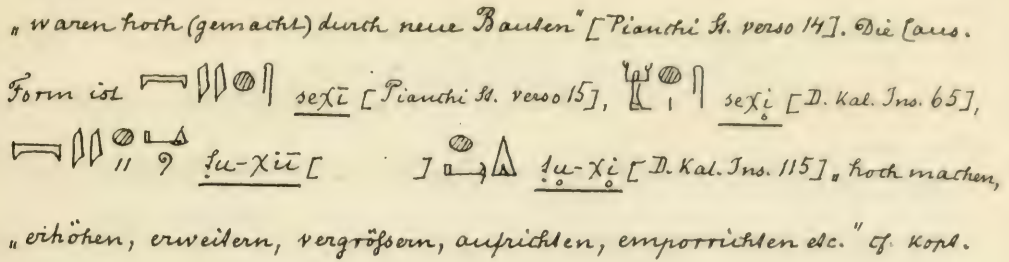 „waren hoch (gemacht) durch neue Bauten“ [Pianchi St. verso 14]. Die Caus.
Form ist seχī [Pianchi St. verso 15], seχi̥ [D. Kal. Ins. 65],
su-χiū [ ] s̥u̥-χi̥ [D. Kal. Ins. 115] „hoch machen,
„erhöhen, erweitern, vergröſsern, aufrichten, emporrichten etc.“ cf. kopt.